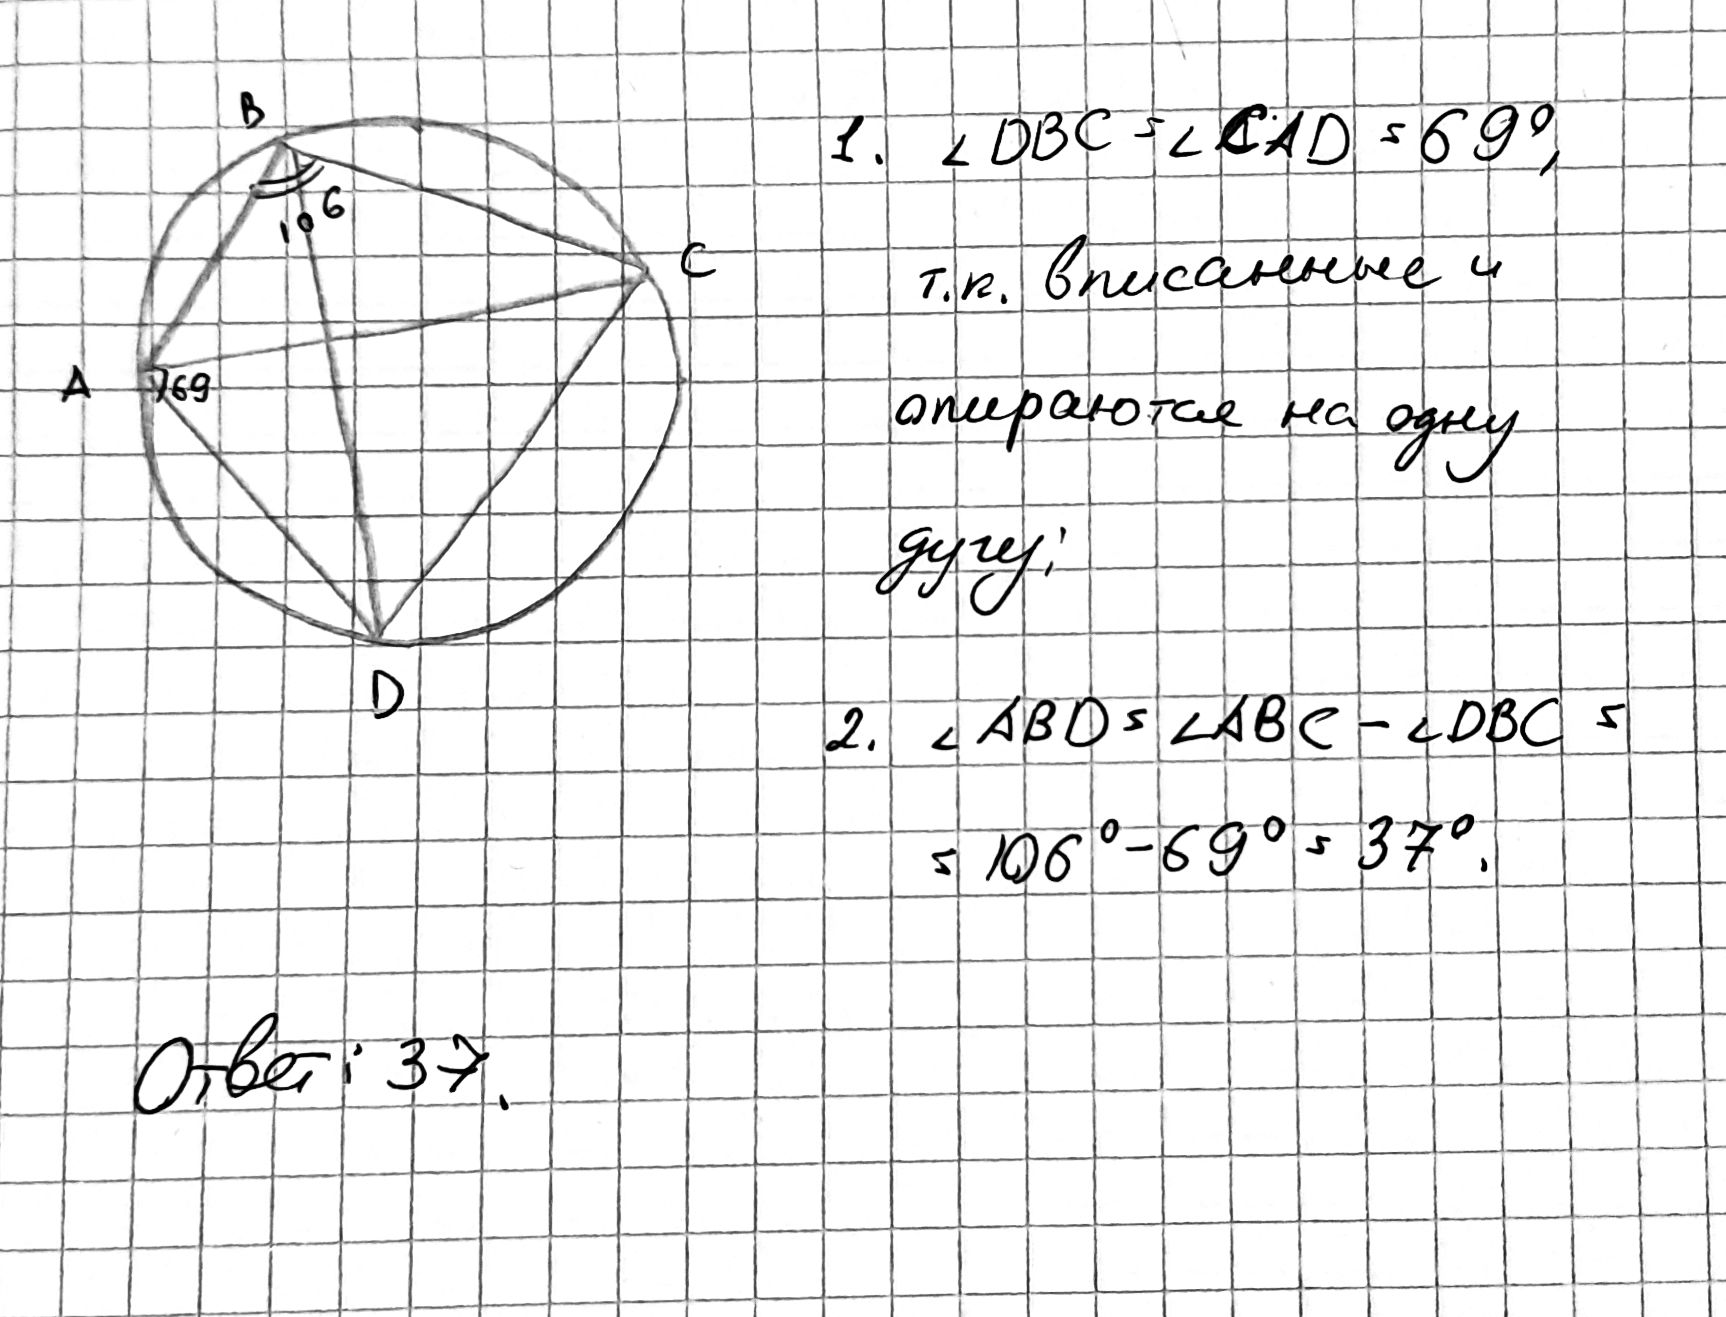 B
106
C
A
69
D
1. ∠DBC = ∠CAD = 69°,
т.к. вписанные и
опираются на одну
дугу;
2. ∠ABD = ∠ABC - ∠DBC =
= 106° - 69° = 37°.
Ответ: 37.